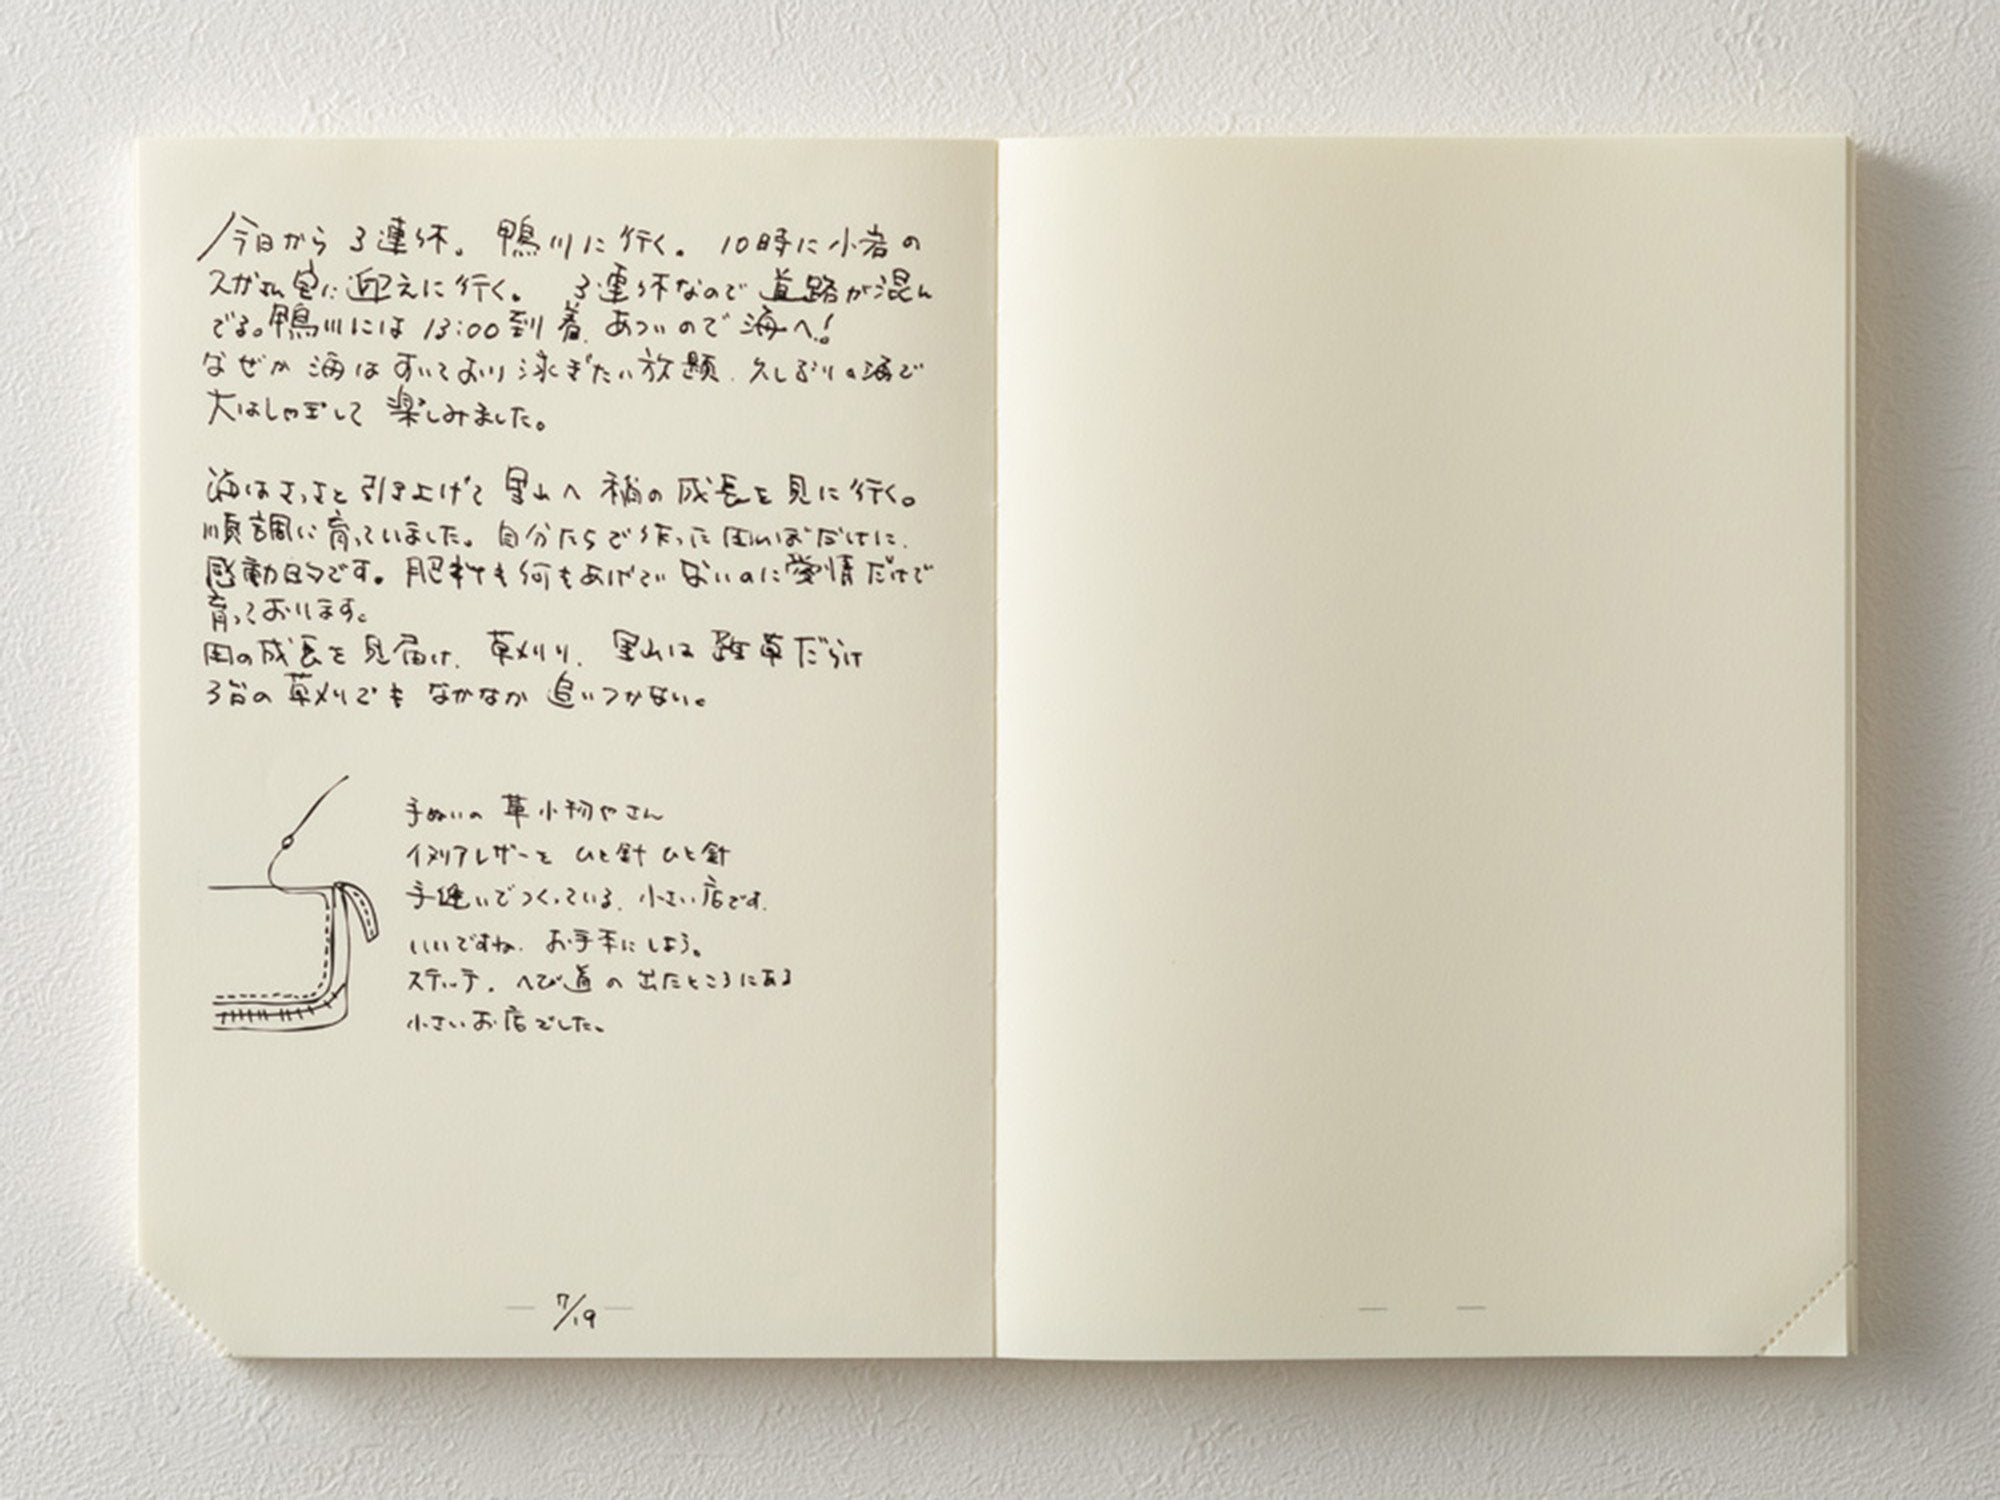 今日から 3連休。 鴨川に行く。 10時に小岩の
スガさん宅に迎えに行く。 3連休なので 道路が混ん
でる。鴨川には 13:00 到着、あついので 海へ!
なぜか 海は すいており 泳ぎたい放題、久しぶりの海で
大はしゃぎして 楽しみました。
海はさっさと 引き上げて 里山へ 稲の成長を見に行く。
順調に育っていました。自分たちで作った田んぼだけに、
感動的です。肥料も何もあげていないのに愛情だけで
育っております。
田の成長を見届け、草刈り、里山は 雑草だらけ
3名の 草刈りでも なかなか 追いつかない。
手ぬいの 革小物やさん
イタリアレザーを ひと針 ひと針
手縫いでつくっている、小さい店です、
いいですね、お手本にしよう。
ステッチ、へび道の 出たところにある
小さいお店でした。
7/19